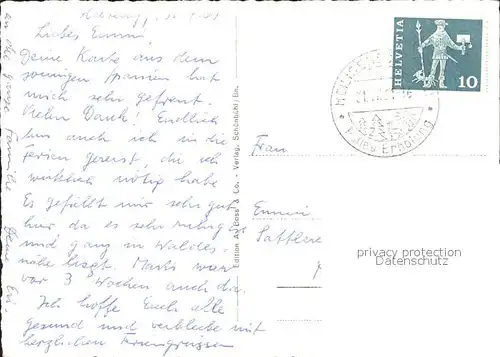 Liebes Emmi,
Deine Karte aus dem
sonnigen Spanien hat
mich sehr gefreut.
Vielen Dank! Endlich
bin auch ich in die
Ferien gereist, die ich
wirklich nötig habe
Es gefällt mir sehr gut
hier da es sehr ruhig ist
und ganz in Waldes-
nähe liegt. war
vor 3 Wochen auch da.
Ich hoffe Euch alle
gesund und verbleibe mit
herzlichen
an die ganze Familie
Edition A. Boss & Co. - Verlag, Schönbühl / Bn.
HELVETIA
10
Erholung
Frau
Emmi
privacy protection
Datenschutz